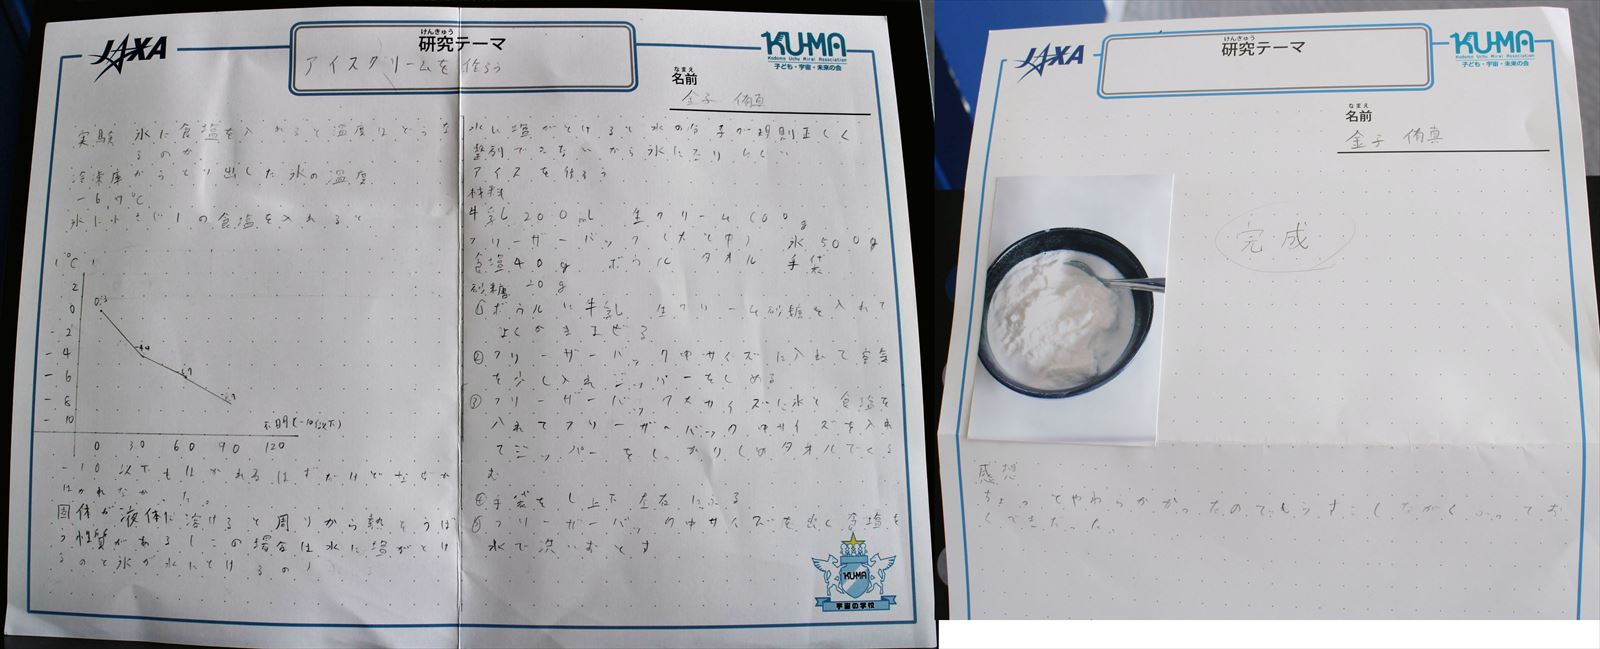 JAXA
けんきゅう
研究テーマ
アイスクリームを作ろう
KU-MA
Kodomo Uchu Mirai Association
子ども・宇宙・未来の会
なまえ
名前
金子 侑真
実験 氷に食塩を入れると温度はどうな
るのか
冷凍庫からとり出した氷の温度
-6.9℃
氷に小さじ1の食塩を入れると
℃
2
0
-2
-4
-6
-8
-10
0.3
-4.4
不明(-10以下)
0 30 60 90 120
-10以下もはかれるはずだけどなぜか
はかれなかった。
固体が液体に溶けると周りから熱をうば
う性質がある(この場合は水に塩がとけ
るのと氷が水にとけるの)
水に塩がとけると水の分子が規則正しく
整列できないから氷になりにくい
アイスを作ろう
材料
牛乳200mL 生クリーム100g
フリーザーバック(大と中) 氷500g
食塩40g ボウル タオル 手袋
砂糖20g
①ボウルに牛乳 生クリーム砂糖を入れて
よくかきまぜる
②フリーザーバック中サイズに入れて空気
を少し入れジッパーをしめる
③フリーザーバック大サイズに氷と食塩を
入れてフリーザーバック中サイズを入れ
てジッパーをしっかりしめタオルでくる
む
④手袋をし上下左右にふる
⑤フリーザーバック中サイズを出し食塩を
水で洗いおとす
KU-MA
宇宙の学校
JAXA
けんきゅう
研究テーマ
KU-MA
Kodomo Uchu Mirai Association
子ども・宇宙・未来の会
なまえ
名前
金子 侑真
完成
感想
ちょっとやわらかかったのでもうすこしながくふってお
くべきだった